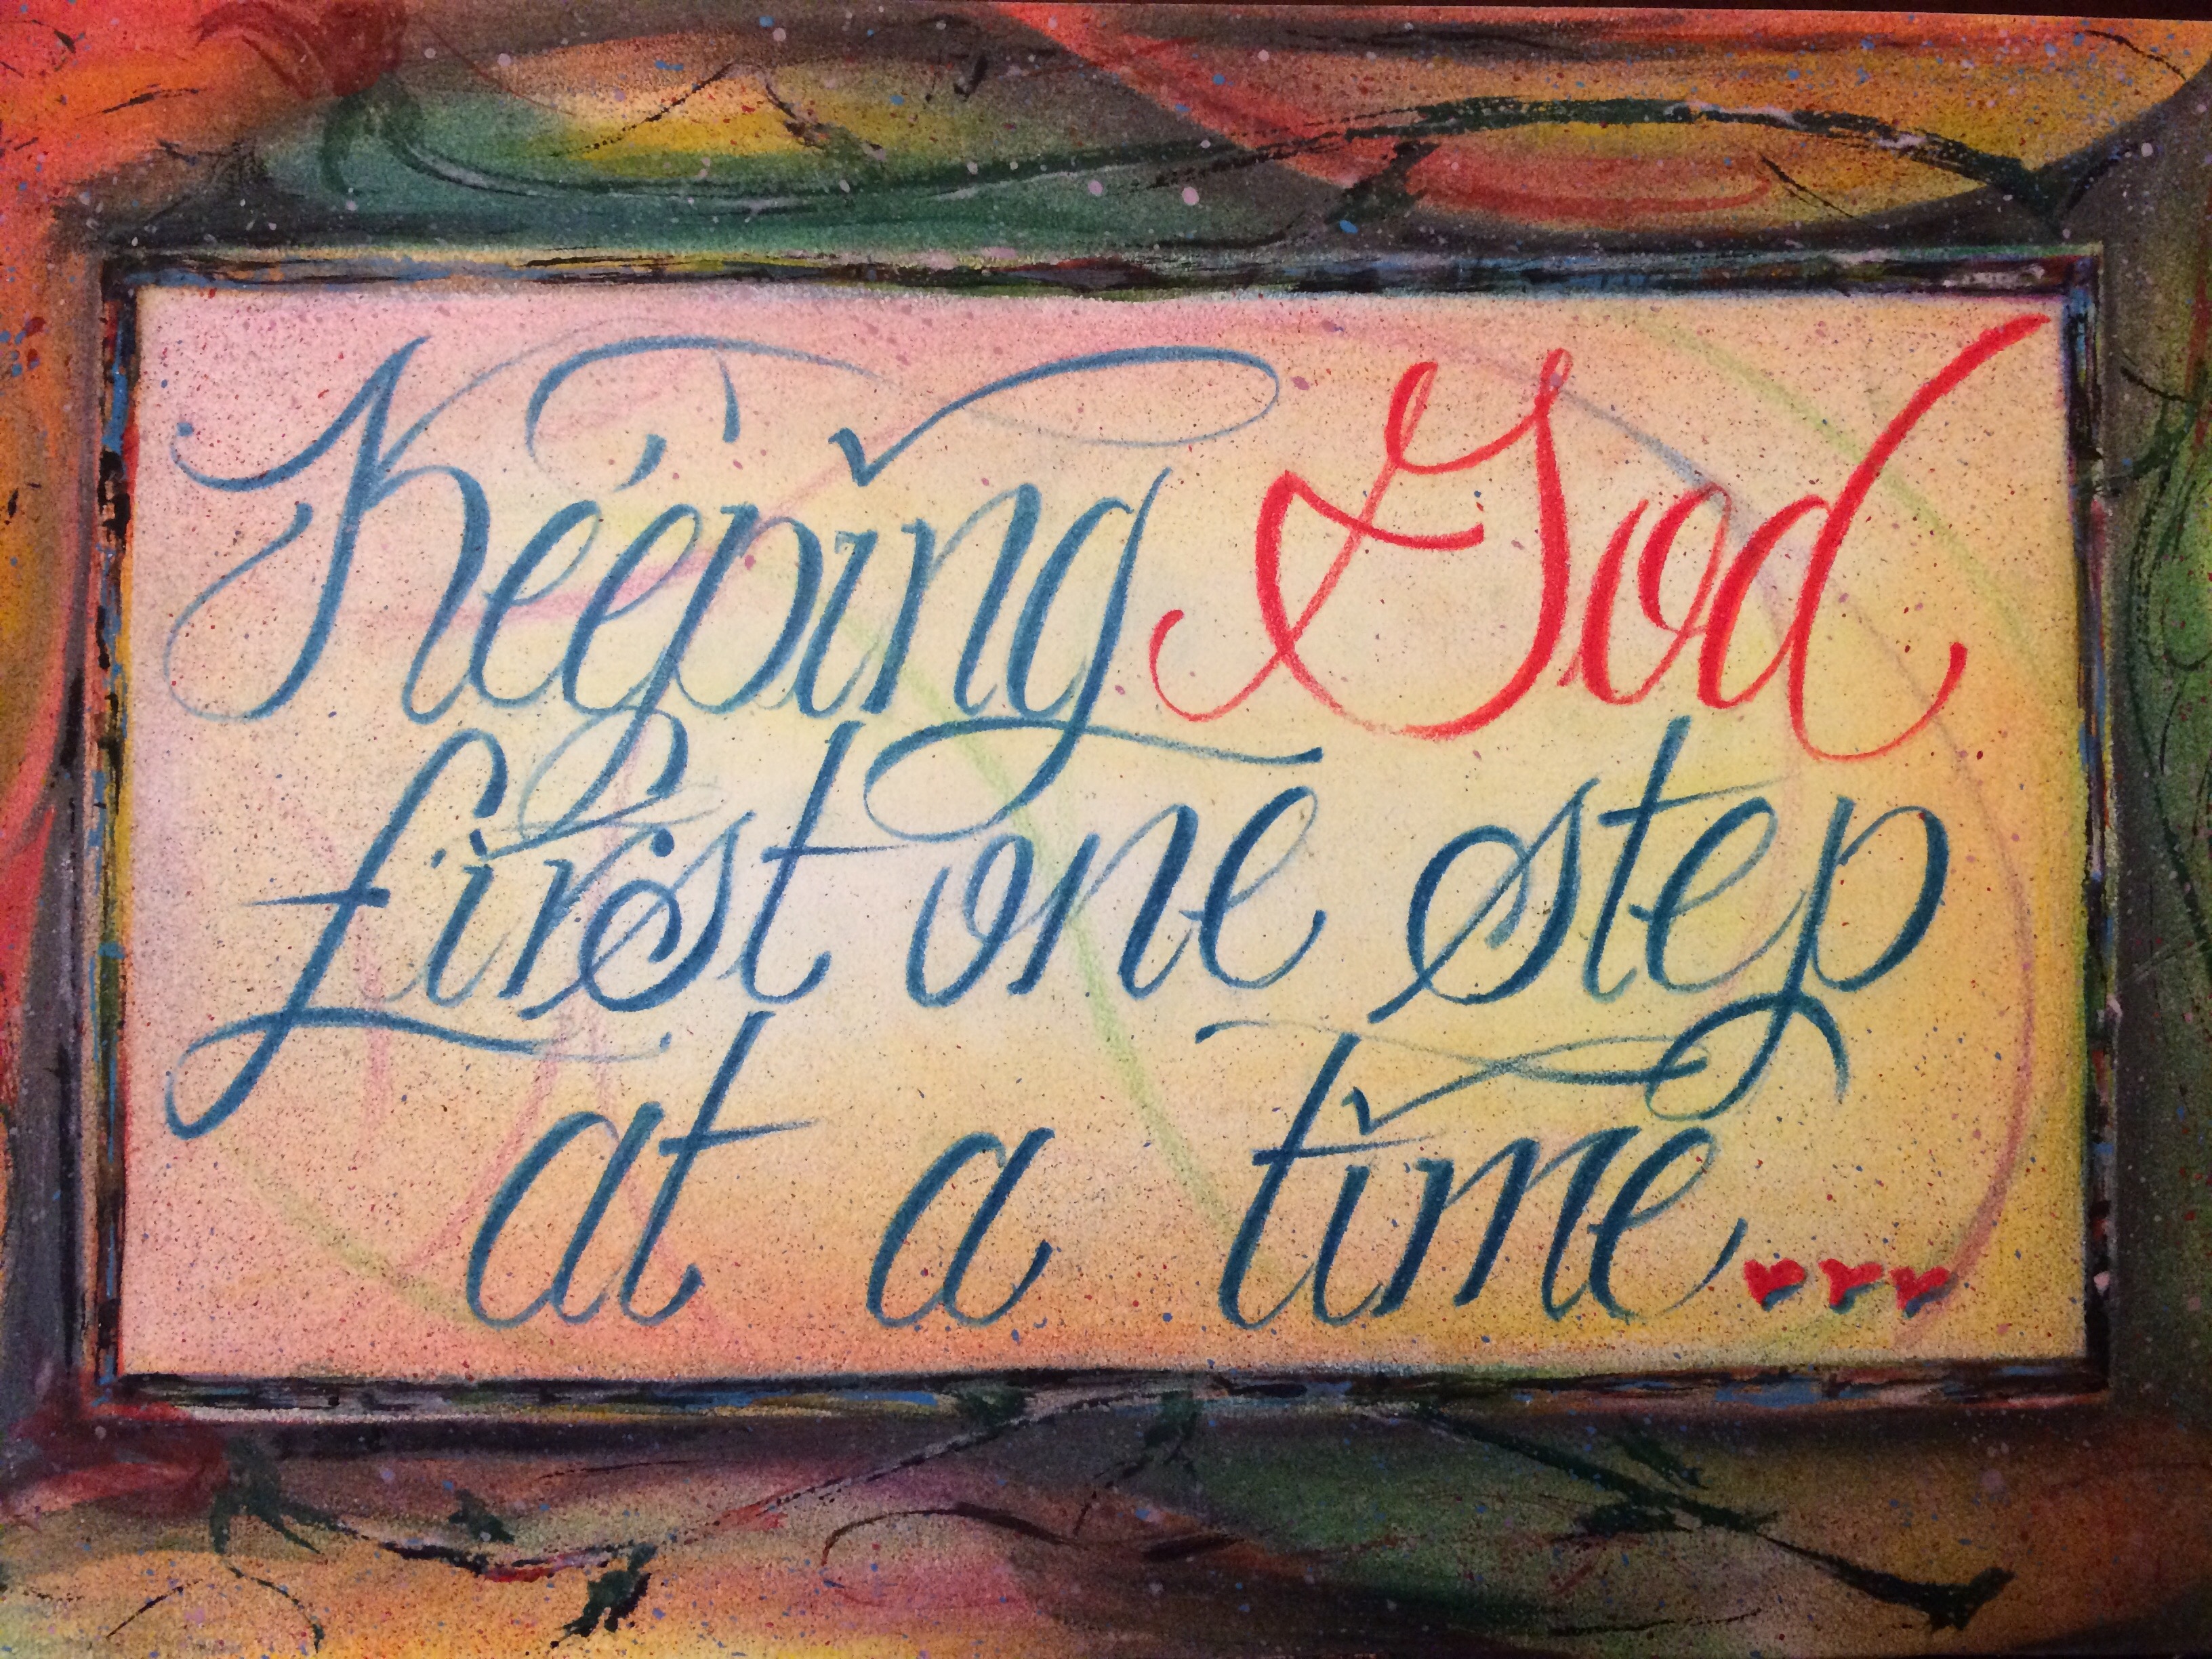 Keeping God
first one step
at a time...